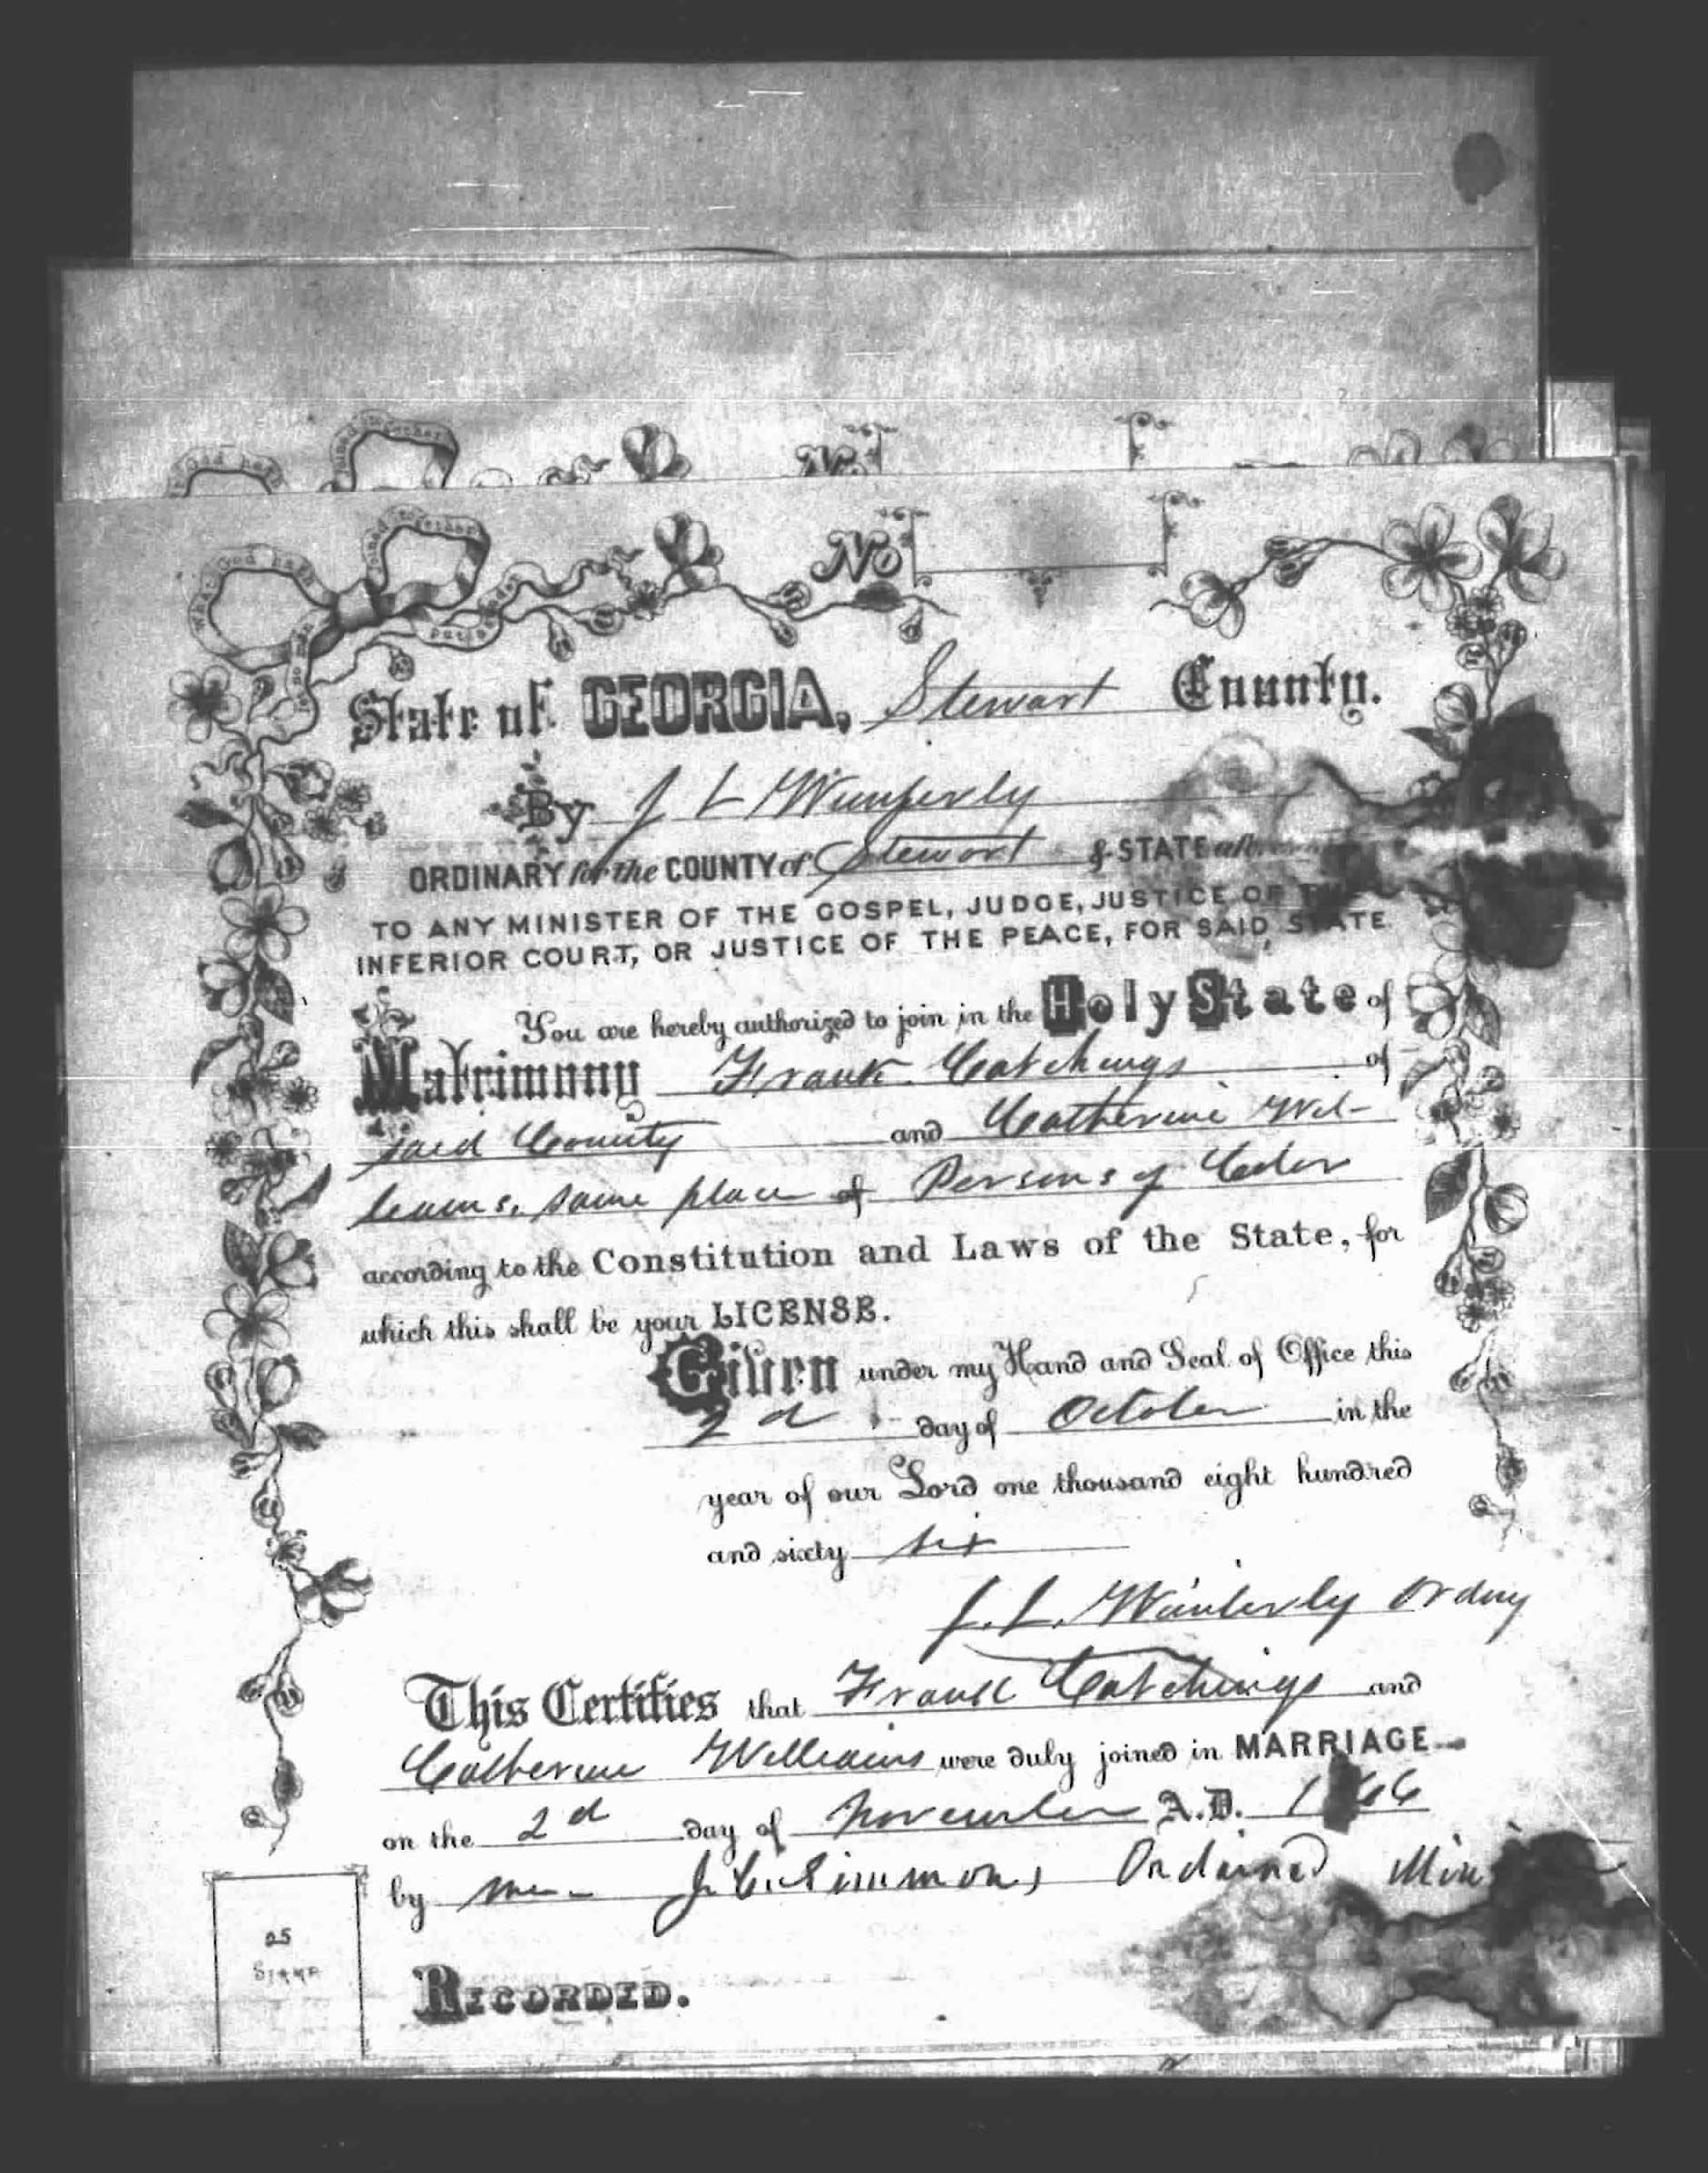 God hath
joined together
No
what God hath
joined together
let no man
put asunder
No
State of GEORGIA, Stewart County.
By J L Wimberly
ORDINARY for the COUNTY of Stewart & STATE
TO ANY MINISTER OF THE GOSPEL, JUDGE, JUSTICE OF THE
INFERIOR COURT, OR JUSTICE OF THE PEACE, FOR SAID STATE
You are hereby authorized to join in the Holy State of
Matrimony Frank Catchings of
said County and Catherine Wil-
leams, same place of Persons of Color
according to the Constitution and Laws of the State, for
which this shall be your LICENSE.
Given under my Hand and Seal of Office this
2d day of October in the
year of our Lord one thousand eight hundred
and sixty six
J. L. Wimberly Ordny
This Certifies that Frank Catchings and
Catherine Williams were duly joined in MARRIAGE
on the 2d day of November A.D. 1866
by me J. C. Simmons, Ordained Min
25
STAMP
RECORDED.